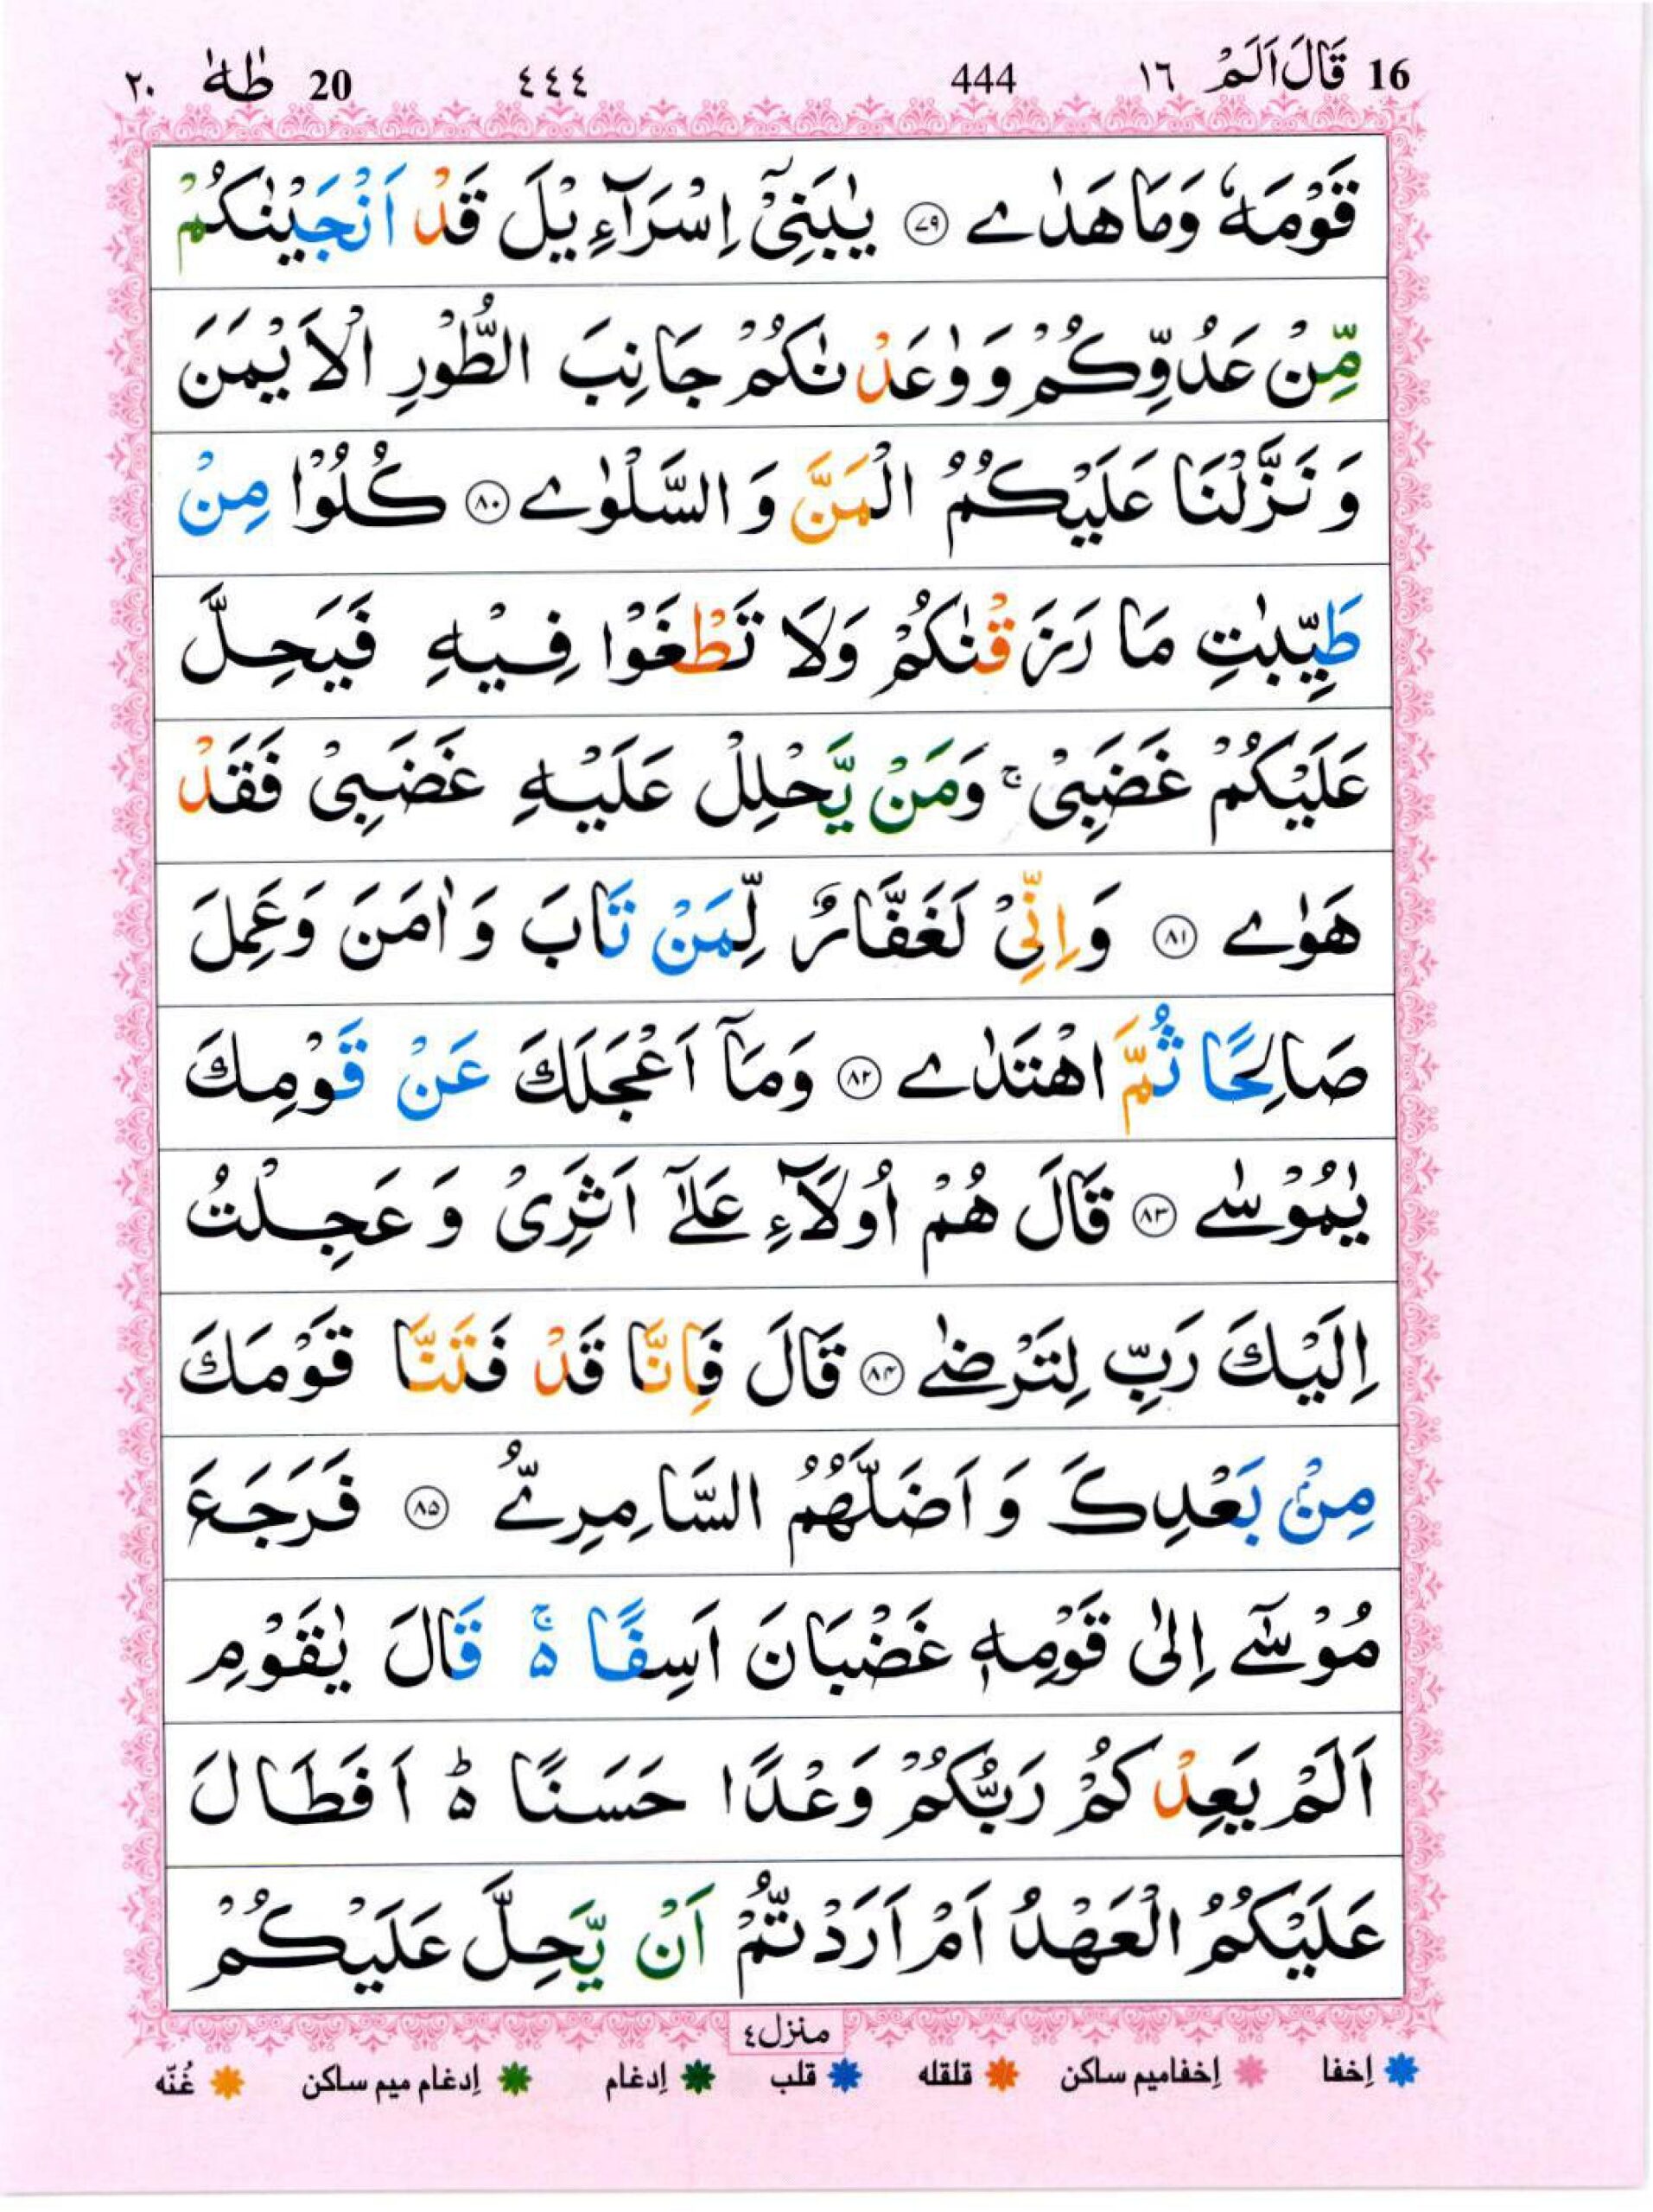 16 قَالَ اَلَمْ ١٦ 444 ٤٤٤ 20 طٰهٰ ٢٠
قَوْمَهٗ وَمَا هَدٰی ۝۷۹ یٰبَنِیْۤ اِسْرَآءِیْلَ قَدْ اَنْجَیْنٰكُمْ
مِّنْ عَدُوِّكُمْ وَ وٰعَدْنٰكُمْ جَانِبَ الطُّوْرِ الْاَیْمَنَ
وَ نَزَّلْنَا عَلَیْكُمُ الْمَنَّ وَ السَّلْوٰی ۝۸۰ كُلُوْا مِنْ
طَیِّبٰتِ مَا رَزَقْنٰكُمْ وَلَا تَطْغَوْا فِیْهِ فَیَحِلَّ
عَلَیْكُمْ غَضَبِیْ ۚ وَمَنْ یَّحْلِلْ عَلَیْهِ غَضَبِیْ فَقَدْ
هَوٰی ۝۸۱ وَاِنِّیْ لَغَفَّارٌ لِّمَنْ تَابَ وَ اٰمَنَ وَعَمِلَ
صَالِحًا ثُمَّ اهْتَدٰی ۝۸۲ وَمَاۤ اَعْجَلَكَ عَنْ قَوْمِكَ
یٰمُوْسٰی ۝۸۳ قَالَ هُمْ اُولَآءِ عَلٰۤی اَثَرِیْ وَ عَجِلْتُ
اِلَیْكَ رَبِّ لِتَرْضٰی ۝۸۴ قَالَ فَاِنَّا قَدْ فَتَنَّا قَوْمَكَ
مِنْۢ بَعْدِكَ وَ اَضَلَّهُمُ السَّامِرِیُّ ۝۸۵ فَرَجَعَ
مُوْسٰۤی اِلٰی قَوْمِهٖ غَضْبَانَ اَسِفًا ۵ۚ قَالَ یٰقَوْمِ
اَلَمْ یَعِدْكُمْ رَبُّكُمْ وَعْدًا حَسَنًا ۵ؕ اَفَطَالَ
عَلَیْكُمُ الْعَهْدُ اَمْ اَرَدْتُّمْ اَنْ یَّحِلَّ عَلَیْكُمْ
منزل٤
إخفا إخفامیم ساكن قلقله قلب إدغام إدغام میم ساكن غُنّه